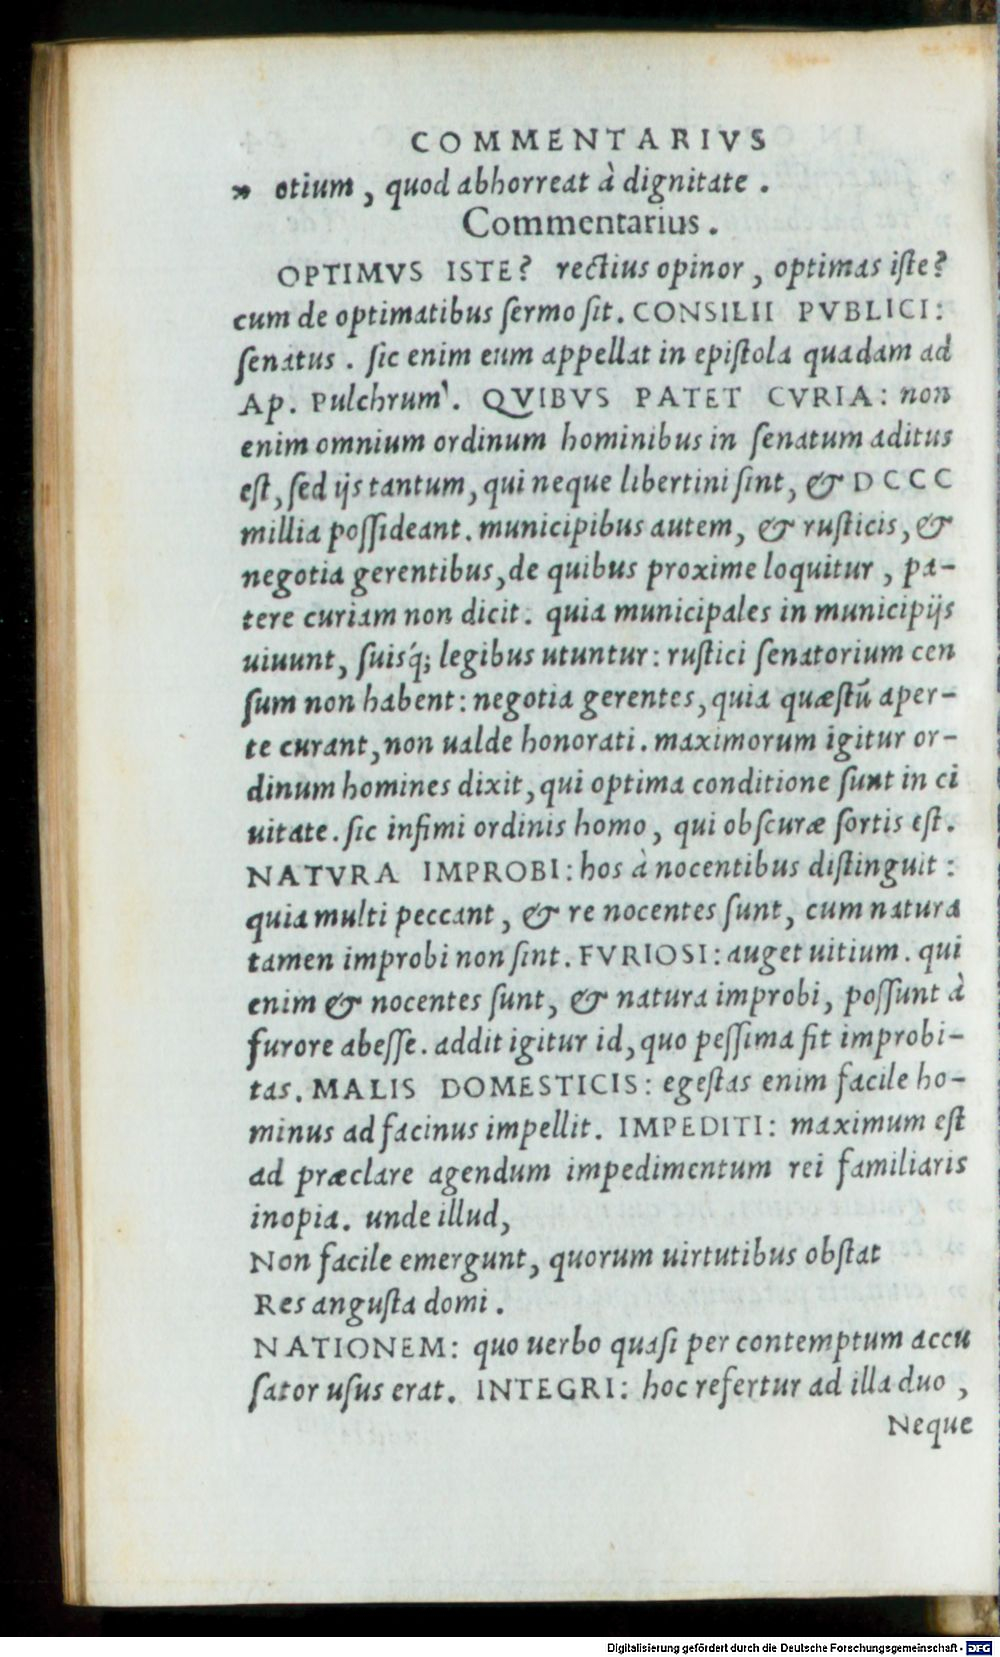 COMMENTARIVS
» otium, quod abhorreat à dignitate.
Commentarius.
OPTIMVS ISTE? rectius opinor, optimas iſte?
cum de optimatibus ſermo ſit. CONSILII PVBLICI:
ſenatus. ſic enim eum appellat in epiſtola quadam ad
Ap. Pulchrum. QVIBVS PATET CVRIA: non
enim omnium ordinum hominibus in ſenatum aditus
eſt, ſed ijs tantum, qui neque libertini ſint, & DCCC
millia poſſideant. municipibus autem, & ruſticis, &
negotia gerentibus, de quibus proxime loquitur, pa-
tere curiam non dicit. quia municipales in municipijs
uiuunt, ſuisq́; legibus utuntur: ruſtici ſenatorium cen
ſum non habent: negotia gerentes, quia quæſtū aper-
te curant, non ualde honorati. maximorum igitur or-
dinum homines dixit, qui optima conditione ſunt in ci
uitate. ſic infimi ordinis homo, qui obſcuræ ſortis eſt.
NATVRA IMPROBI: hos à nocentibus diſtinguit:
quia multi peccant, & re nocentes ſunt, cum natura
tamen improbi non ſint. FVRIOSI: auget uitium. qui
enim & nocentes ſunt, & natura improbi, poſſunt à
furore abeſſe. addit igitur id, quo peſſima fit improbi-
tas. MALIS DOMESTICIS: egeſtas enim facile ho-
minus ad facinus impellit. IMPEDITI: maximum eſt
ad præclare agendum impedimentum rei familiaris
inopia. unde illud,
Non facile emergunt, quorum uirtutibus obſtat
Res anguſta domi.
NATIONEM: quo uerbo quaſi per contemptum accu
ſator uſus erat. INTEGRI: hoc refertur ad illa duo,
Neque
Digitalisierung gefördert durch die Deutsche Forschungsgemeinschaft - DFG